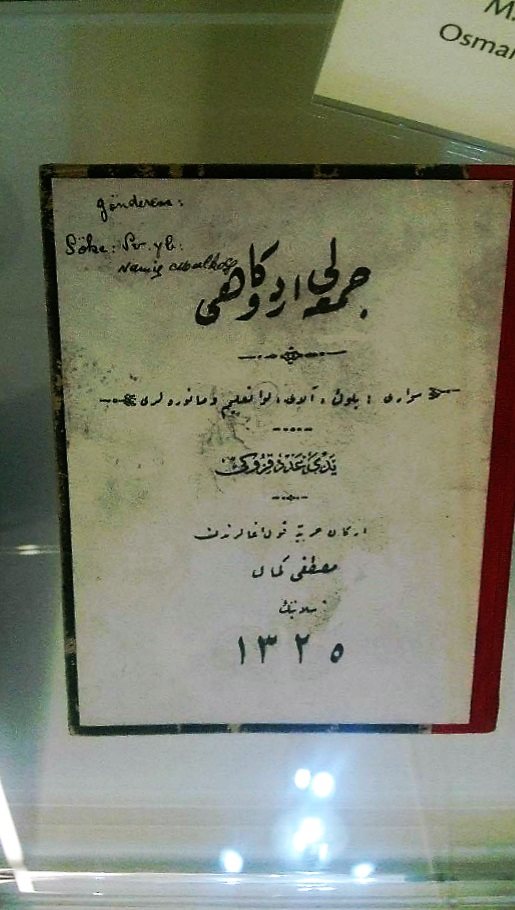 M.
Osman
Gönderen:
Söke: Sv. yb.
Namık
جمعه‌لی اردوگاهی
سواری : بلوك ، آلای ، لوا تعلیم و مانوره‌لری
یدی عدد قروکی
اركان حربیه قول اغالرندن
مصطفی كمال
سلانیك
١٣٢٥